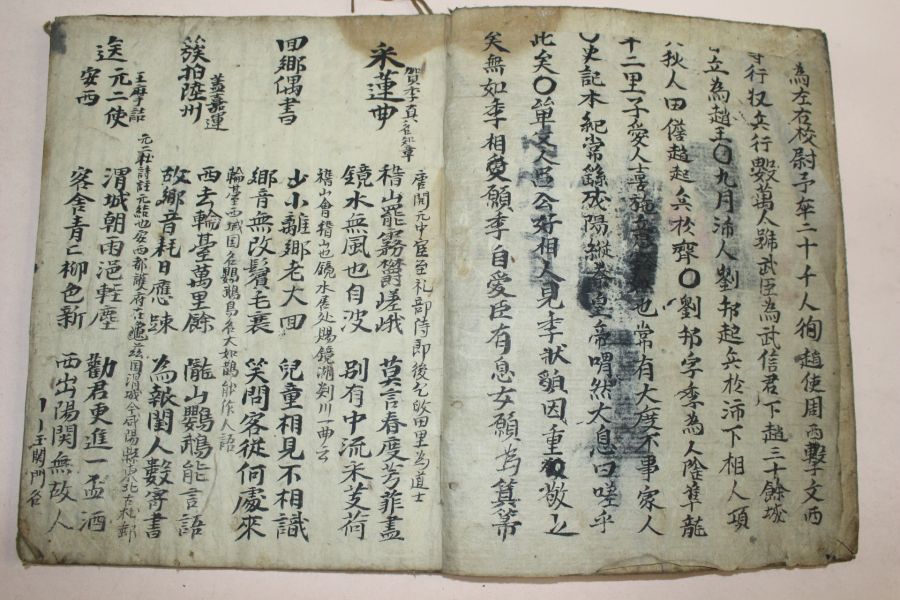 為左右校尉予卒二十千人徇趙使周西擊文西
行收兵行數萬人號武臣為武信君下趙三十餘城
立為趙王〇九月沛人劉邦起兵於沛下相人項
狄人田儋起兵於齊〇劉邦字季為人隆準龍
十二里子愛人喜施意也常有大度不事家人
史記本紀常繇咸陽縱秦皇帝喟然大息曰嗟乎
此矣〇單父人呂公好相人見季狀貌因重敬之
矣無如季相願季自愛臣有息女願為箕箒
采蓮曲
賀季真名知章
唐開元中官至礼部侍郎後乞故田里為道士
稽山罷霧欝嵯峨 莫言春度芳菲盡
鏡水無風也自波 別有中流采芰荷
稽山會稽山也鏡水居处賜鏡湖剡川一曲云
回鄉偶書
少小離鄉老大回 兒童相見不相識
鄉音無改鬢毛衰 笑問客從何處來
簇拍陸州
蓋嘉運
輪臺西域国名鸚鵡鳥名大如鵲能作人語
西去輪臺萬里餘 隴山鸚鵡能言語
故鄉音耗日應踈 為報閨人數寄書
送元二使安西
王摩詰
元二註詩註元結也安西都護府在龜玆国渭城今咸陽縣東北
渭城朝雨浥輕塵 勸君更進一盃酒
客舍青青柳色新 西出陽關無故人
玉関門名